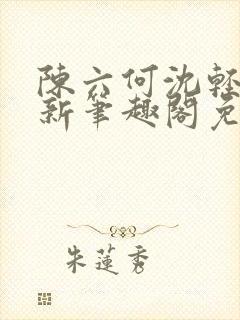 陳六何沈輕
新筆趣閣免
朱蓮秀